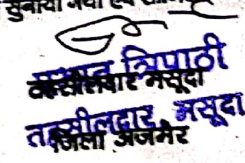 सुनाया गया
त्रिपाठी
तहसीलदार मसूदा
तहसीलदार मसूदा
जिला अजमेर